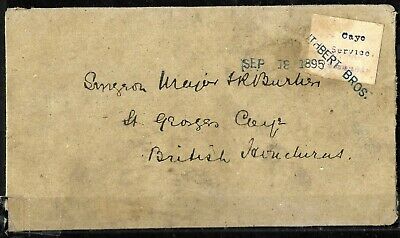 Caye
Service.
SEP 18 1895
BROS.
Surgeon Major
St Georges Caye
British Honduras.